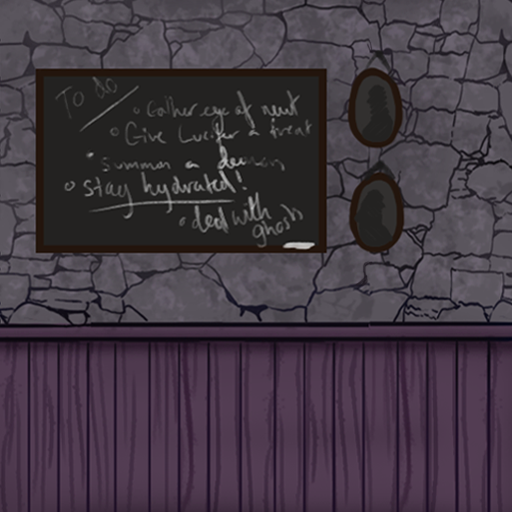 To do
Gather eye of newt
Give Lucifer a treat
summon a demon
stay hydrated!
deal with
ghosts